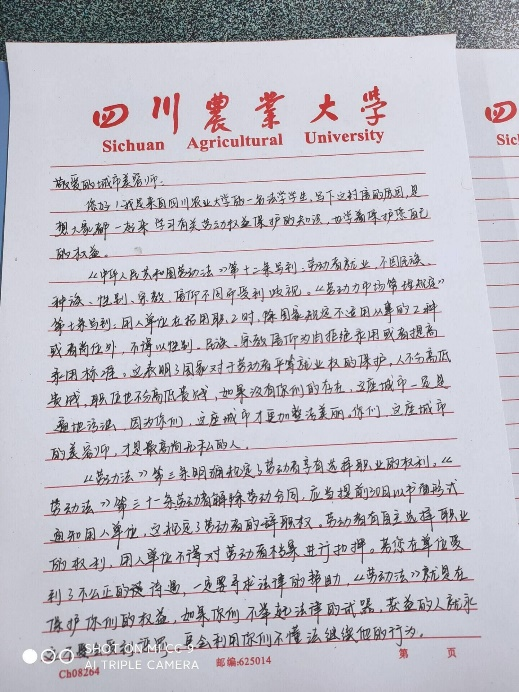 四川農業大學
Sichuan Agricultural University
敬爱的城市美容师:
你好!我是来自四川农业大学的一名法学学生,写下这封信的原因,是
想大家和一起来学习有关劳动权益保护的知识,也学着保护您自己
的权益。
《中华人民共和国劳动法》第十二条写到:劳动者就业,不因民族、
种族、性别、宗教、信仰不同而受到歧视。《劳动力市场管理规定》
第十条写到:用人单位在招用职工时,除国家规定不适用从事的工种
或者岗位外,不得以性别、民族、宗教信仰为由拒绝录用或者提高
录用标准。这表明了国家对于劳动者平等就业权的保护,人不分高低
贵贱,职位也不分高低贵贱,如果没有你们的存在,这座城市一定是
遍地污浊,因为你们,这座城市才更加整洁美丽,你们,这座城市
的美容师,才是最高尚无私的人。
《劳动法》第三条明确规定了劳动者享有选择职业的权利。《
劳动法》第三十一条劳动者解除劳动合同,应当提前30日以书面形式
通知用人单位,它规定了劳动者的辞职权。劳动者有自主选择职业
的权利,用人单位不得对劳动者档案进行扣押。若您在单位受
到了不公正的待遇,一定要寻求法律的帮助,《劳动法》就是在
保护你们的权益,如果你们不举起法律的武器,获益的人就永
更会利用你们不懂法继续他的行为。
SHOT ON MI CC 9
AI TRIPLE CAMERA
Ch08264
邮编:625014
第 页
四
Sic